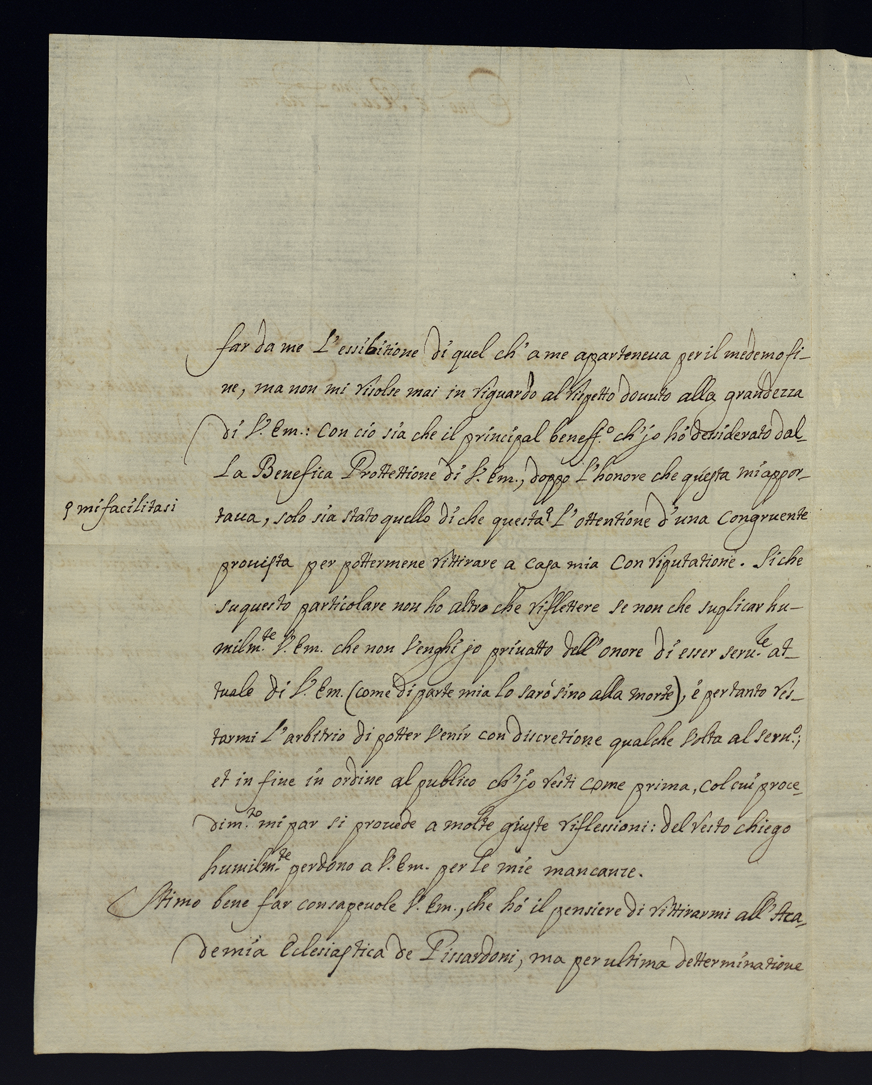 far da me L'essibitione di quel ch'a me aparteneua per il medemo fi-
ne, ma non mi risolse mai in riguardo al rispetto douuto alla grandezza
di V. Em.: con ciò sia che il principal beneff.º ch'jo hò desiderato dal-
La Benefica Prottettione di V. Em., doppo L'honore che questa mi appor-
mi facilitasi
taua, solo sia stato quello di che questa L'ottentione d'una congruente
prouista per pottermene rittirare a casa mia con riputatione. Si che
su questo particolare non ho altro che riflettere se non che suplicar hu-
milm.te V. Em. che non Venghi jo priuatto dell'onore di esser seru.te at-
tuale di V. Em. (come di parte mia lo sarò sino alla morte), é per tanto res-
tarmi L'arbitrio di potter Venir con discretione qualche Volta al seru.º;
et in fine in ordine al publico ch'jo resti come prima, col cui proce-
dim.to mi par si prouede a molte giuste riflessioni: del resto chiego
humilm.te perdono a V. Em. per le mie mancanze.
Stimo bene far consapeuole V. Em., che hó il pensiere di rittirarmi all'Aca-
demia Eclesiastica de Pissardoni, ma per ultima detterminatione